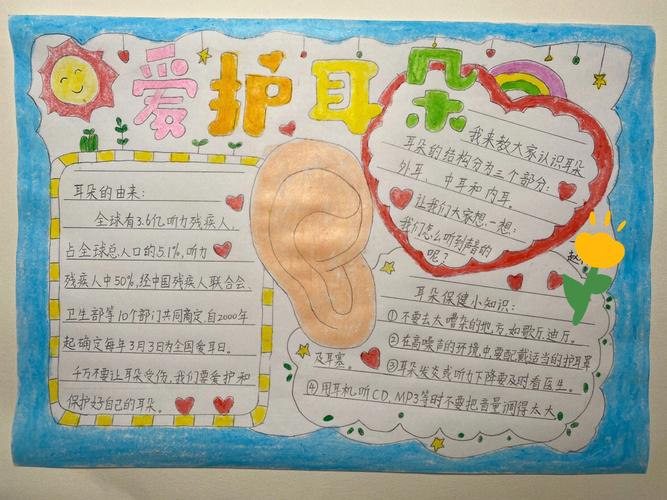 爱护耳朵
耳朵的由来:
全球有3.6亿听力残疾人,
占全球总人口的5.1%,听力
残疾人中50%,经中国残疾人联合会、
卫生部等10个部门共同商定,自2000年
起确定每年3月3日为全国爱耳日。
千万不要让耳朵受伤,我们要爱护和
保护好自己的耳朵。
我来教大家认识耳朵
耳朵的结构分为三个部分:
外耳、中耳和内耳。
让我们大家想一想:
我们怎么听到声音的
呢?
耳朵保健小知识:
①不要去太嘈杂的地方,如歌厅.迪厅。
②在高噪声的环境中要配戴适当的护耳罩
及耳塞。
③耳朵发炎或听力下降要及时看医生。
④用耳机听CD、MP3等时不要把音量调得太大。